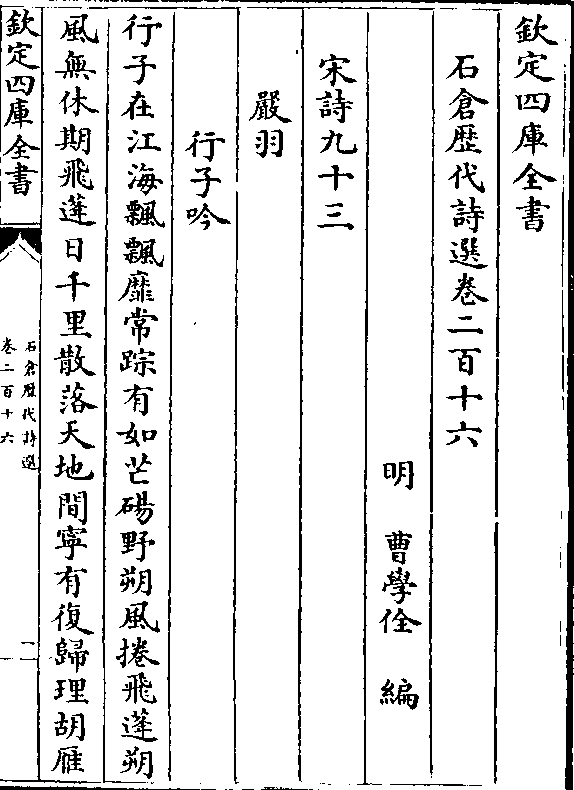 欽定四庫全書
石倉歷代詩選卷二百十六
明 曹學佺 編
宋詩九十三
嚴羽
行子吟
行子在江海飄飄靡常踪有如芒碭野朔風捲飛蓬朔
風無休期飛蓬日千里散落天地間寧有復歸理胡雁
欽定四庫全書
石倉歷代詩選
卷二百十六
一